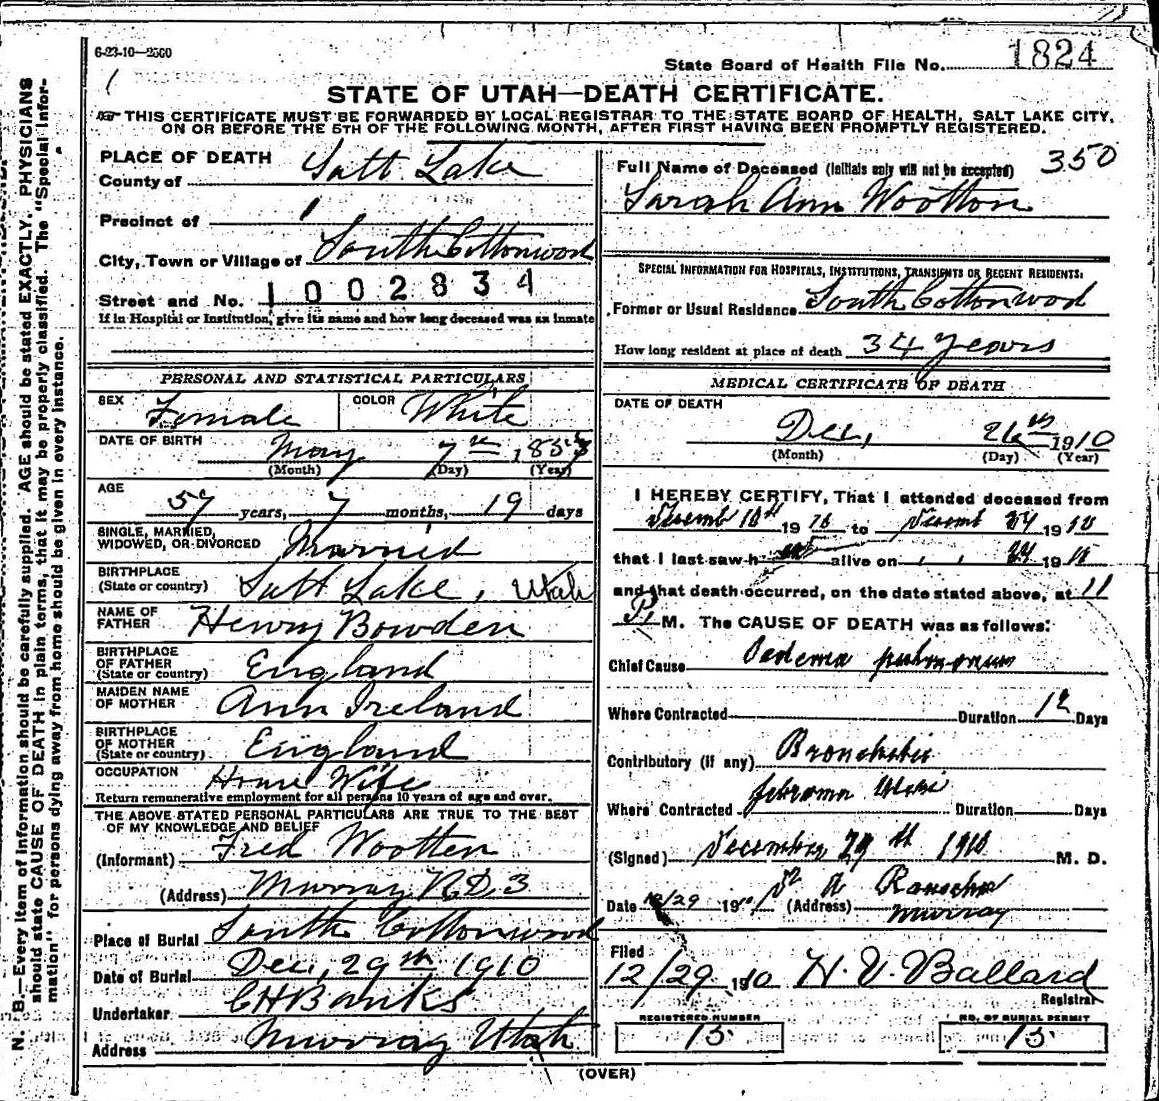 6-23-10—2500
State Board of Health File No. 1824
STATE OF UTAH—DEATH CERTIFICATE.
THIS CERTIFICATE MUST BE FORWARDED BY LOCAL REGISTRAR TO THE STATE BOARD OF HEALTH, SALT LAKE CITY,
ON OR BEFORE THE 5TH OF THE FOLLOWING MONTH, AFTER FIRST HAVING BEEN PROMPTLY REGISTERED.
PLACE OF DEATH
County of Salt Lake
Precinct of 1
City, Town or Village of South Cottonwood
Street and No. 1002834
If in Hospital or Institution, give its name and how long deceased was an inmate
PERSONAL AND STATISTICAL PARTICULARS
SEX Female COLOR White
DATE OF BIRTH May 7th 1853
(Month) (Day) (Year)
AGE
57 years, 7 months, 19 days
SINGLE, MARRIED,
WIDOWED, OR DIVORCED Married
BIRTHPLACE
(State or country) Salt Lake, Utah
NAME OF
FATHER Henry Bowden
BIRTHPLACE
OF FATHER
(State or country) England
MAIDEN NAME
OF MOTHER Ann Ireland
BIRTHPLACE
OF MOTHER
(State or country) England
OCCUPATION House Wife
Return remunerative employment for all persons 10 years of age and over.
THE ABOVE STATED PERSONAL PARTICULARS ARE TRUE TO THE BEST
OF MY KNOWLEDGE AND BELIEF
(Informant) Fred Wootten
(Address) Murray R.D.3
Place of Burial South Cottonwood
Date of Burial Dec, 29th, 1910
Undertaker C H Banks
Address Murray Utah
350
Full Name of Deceased (Initials only will not be accepted)
Sarah Ann Wootton
SPECIAL INFORMATION FOR HOSPITALS, INSTITUTIONS, TRANSIENTS OR RECENT RESIDENTS.
Former or Usual Residence South Cottonwood
How long resident at place of death 34 years
MEDICAL CERTIFICATE OF DEATH
DATE OF DEATH
Dec, 26 1910
(Month) (Day) (Year)
I HEREBY CERTIFY, That I attended deceased from
19 to 24 1910
that I last saw h alive on 24 1910
and that death occurred, on the date stated above, at 11
P. M. The CAUSE OF DEATH was as follows:
Chief Cause Oedema pulmonum
Where Contracted Duration 12 Days
Contributory (if any) Bronchitis
Where Contracted Duration Days
(Signed) December 29th 1910 M. D.
Date 12/29 1910 (Address) Murray
Filed
12/29 1910 H. V. Ballard
Registrar
REGISTERED NUMBER
15
NO. OF BURIAL PERMIT
15
(OVER)
N. B.—Every item of information should be carefully supplied. AGE should be stated EXACTLY. PHYSICIANS
should state CAUSE OF DEATH in plain terms, that it may be properly classified. The "Special Infor-
mation" for persons dying away from home should be given in every instance.